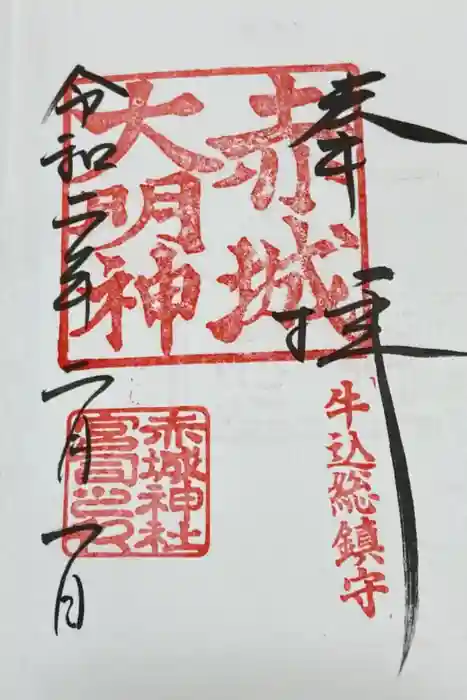 奉拝
牛込総鎮守
赤城
大明神
赤城神社
宮司之印
令和二年二月一日